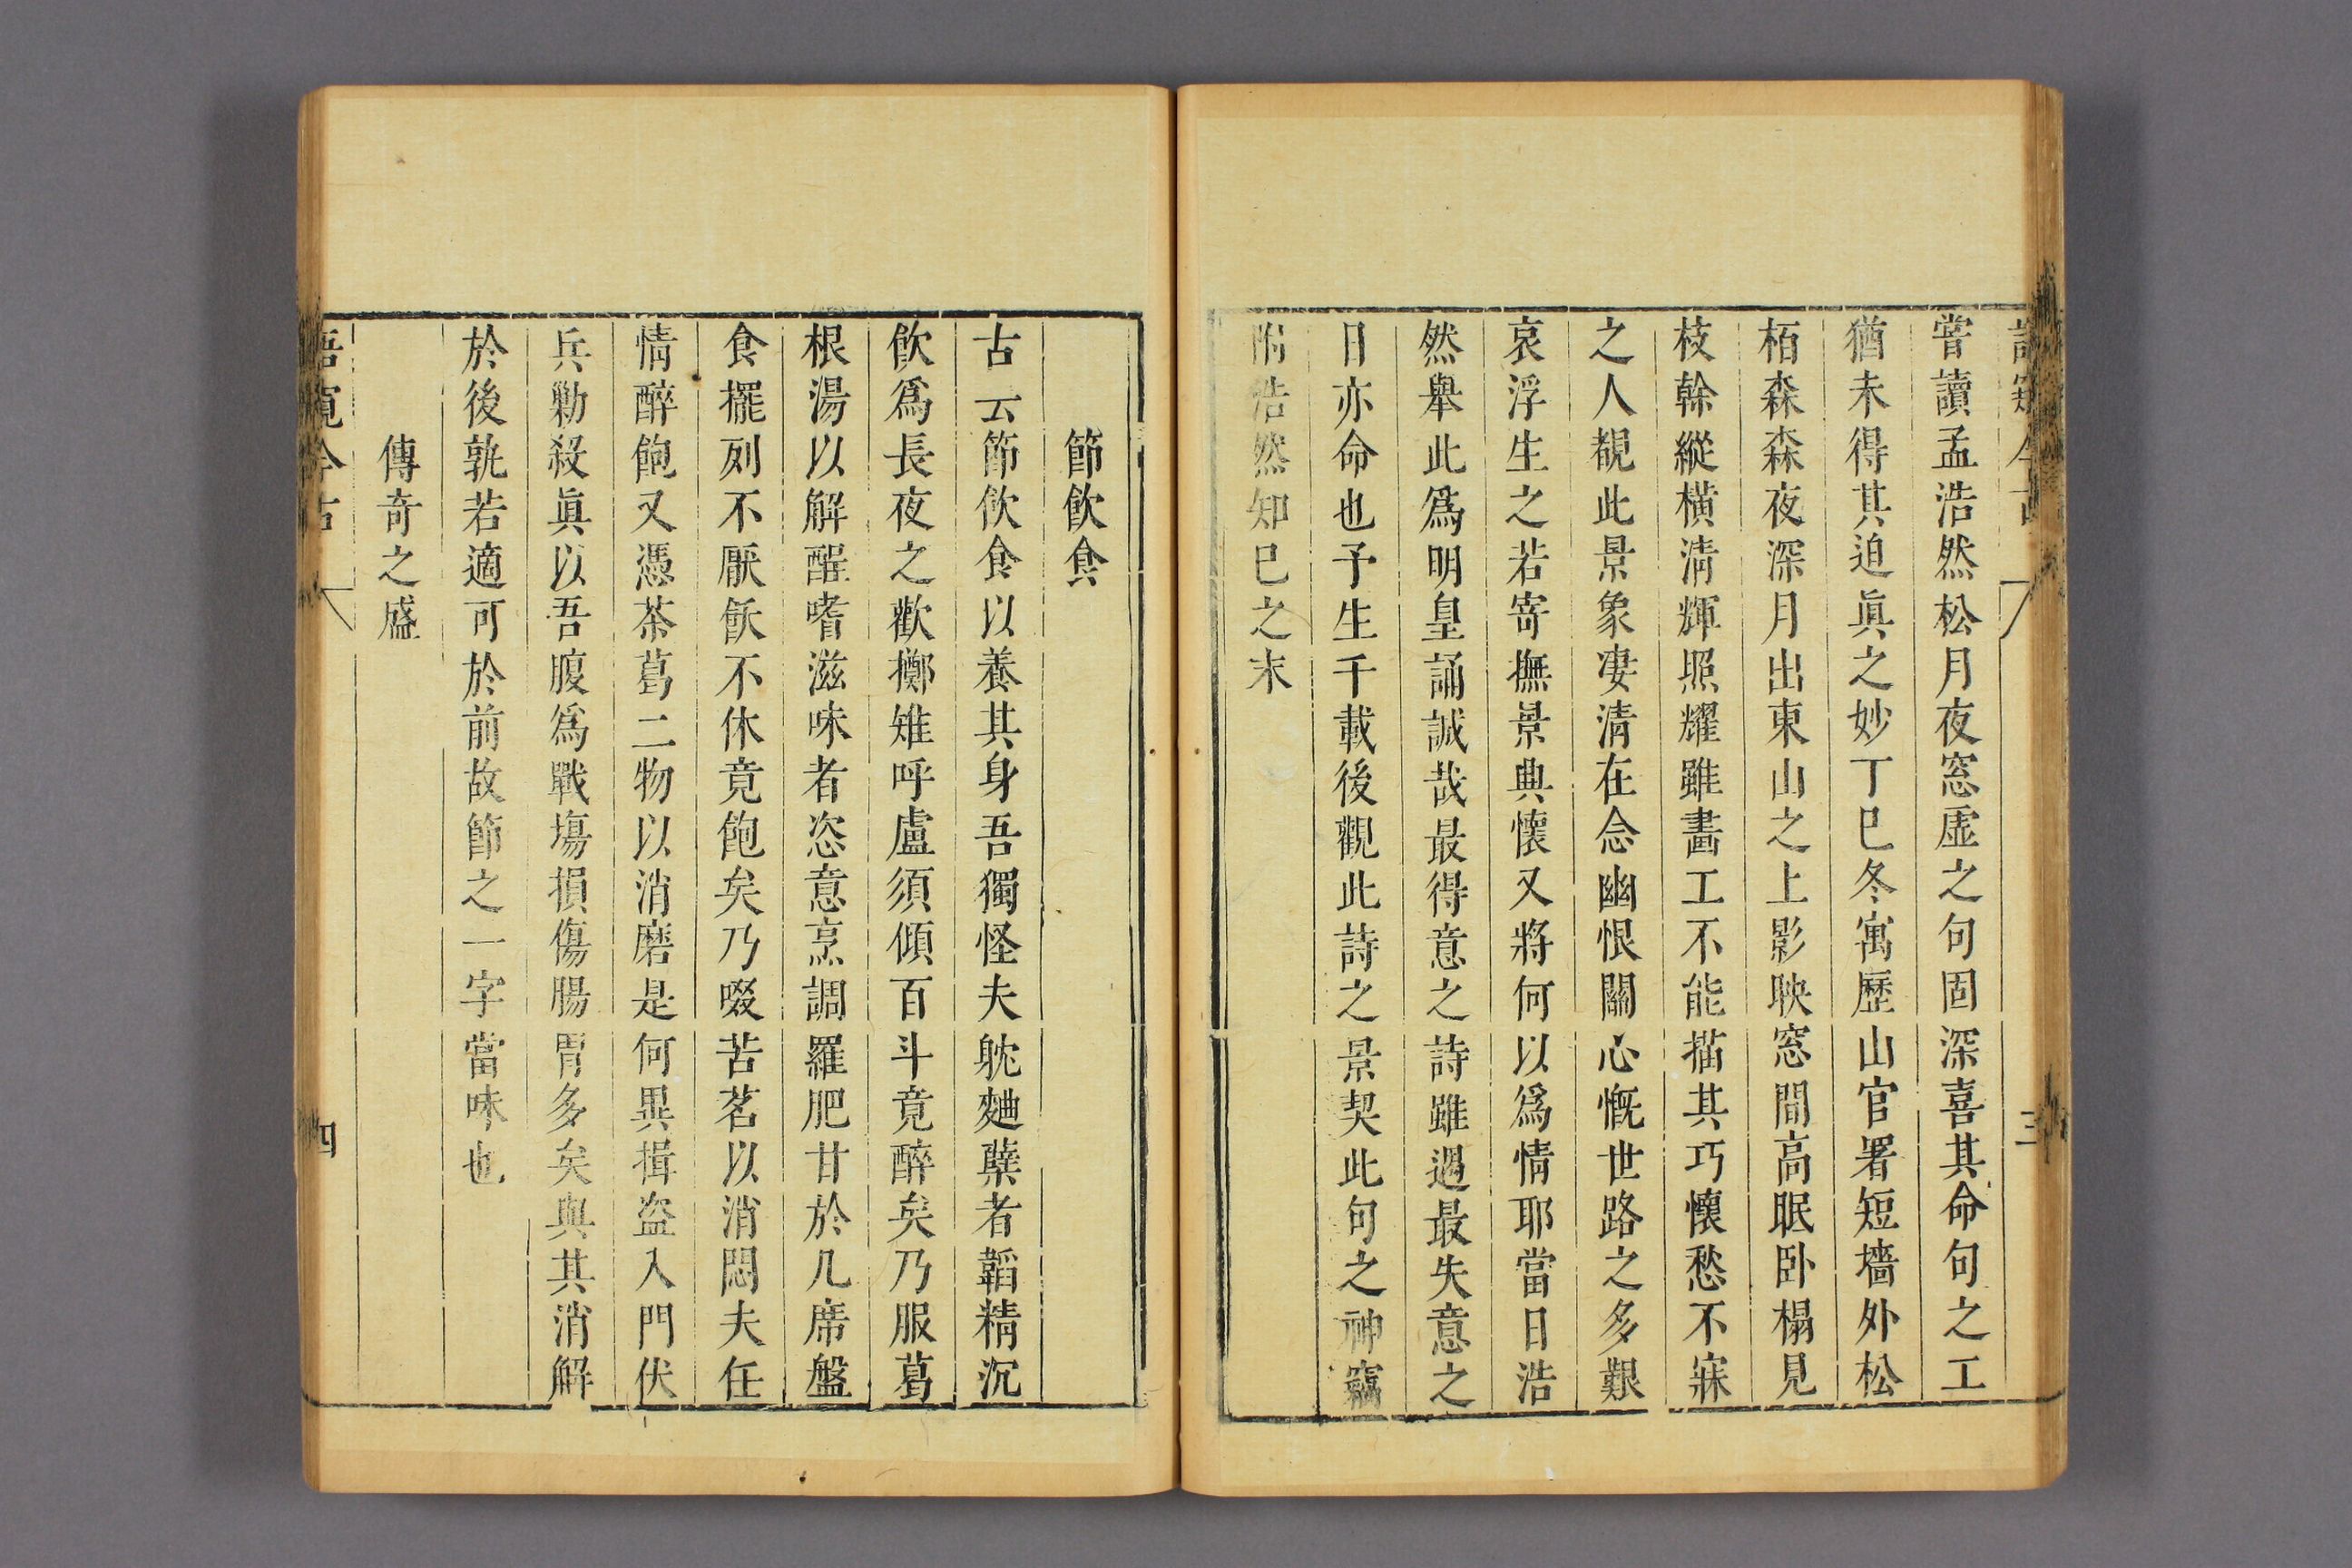 嘗讀孟浩然松月夜窓虛之句固深喜其命句之工
猶未得其迫眞之妙丁巳冬寓歷山官署短墻外松
栢森森夜深月出東山之上影映窓間高眠卧榻見
枝幹縱橫淸輝照耀雖畵工不能描其巧懷愁不寐
之人覩此景象凄清在念幽恨關心慨世路之多艱
哀浮生之若寄撫景興懷又將何以爲情耶當日浩
然舉此爲明皇誦誠哉最得意之詩雖遇最失意之
日亦命也予生千載後觀此詩之景契此句之神竊
附浩然知巳之末
三
節飮食
古云節飲食以養其身吾獨怪夫躭麯蘖者韜精沉
飮爲長夜之歡擲雉呼盧須傾百斗竟醉矣乃服葛
根湯以解酲嗜滋味者恣意烹調羅肥甘於几席盤
食擺列不厭飫不休竟飽矣乃啜苦茗以消悶夫任
情醉飽又憑茶葛二物以消磨是何異揖盜入門伏
兵勦殺眞以吾腹爲戰塲損傷腸胃多矣與其消解
於後孰若適可於前故節之一字當味也
傳奇之盛
四